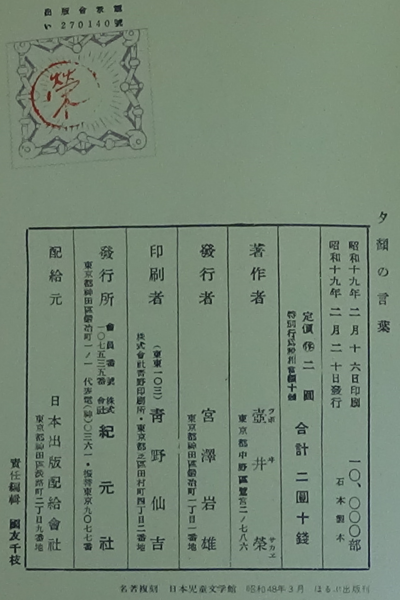 出版會承認
い270140號
榮
夕顔の言葉
昭和十九年二月十六日印刷
昭和十九年二月二十日發行
一〇、〇〇〇部
石本製本
定價 停 二圓
特別行爲税相當額十錢
合計 二圓十錢
著作者 壺井榮
ツボヰ サカエ
東京都中野區鷺宮二ノ七八六
發行者 宮澤岩雄
東京都神田區鍛冶町一丁目一番地
印刷者 靑野仙吉
(東東一〇三)
株式會社靑野印刷所・東京都芝區田村町四丁目二番地
發行所 株式會社 紀元社
會員番號一〇七五三五番
東京都神田區鍛冶町一ノ一 代表電(神)〇三六一・振替東京九〇七七番
配給元 日本出版配給會社
東京都神田區淡路町二丁目九番地
責任編輯 國友千枝
名著複刻 日本児童文学館 昭和48年3月 ほるぷ出版刊